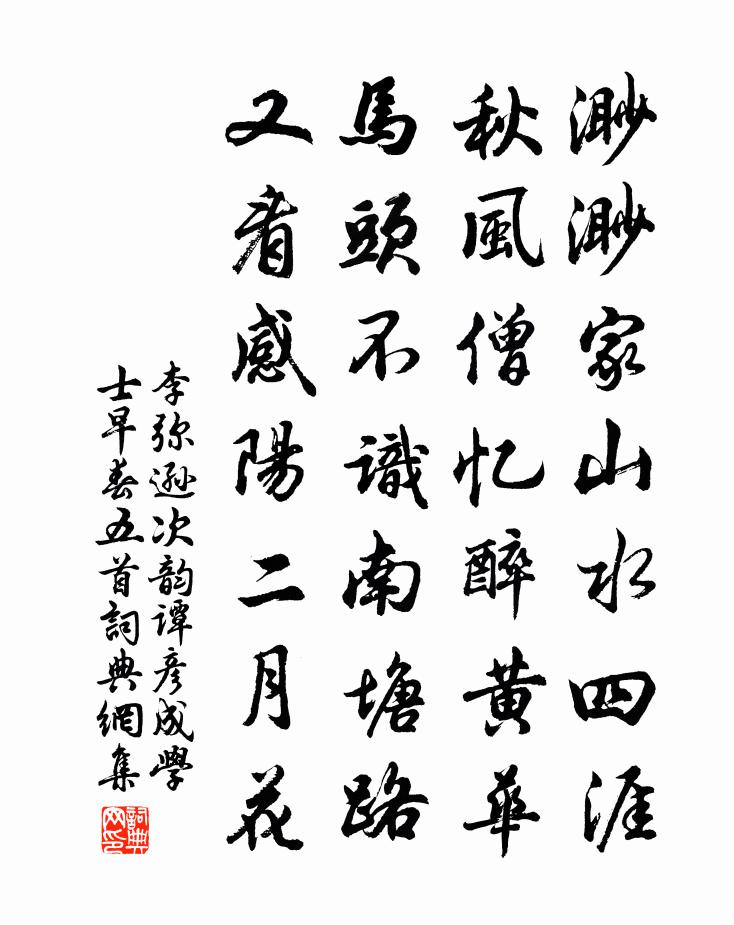 渺渺家山水四涯
秋風僧忆醉黄華
馬頭不識南塘路
又看感陽二月花
李弥遜次韵谭彦成學
士早春五首詞典網集
詞典网印